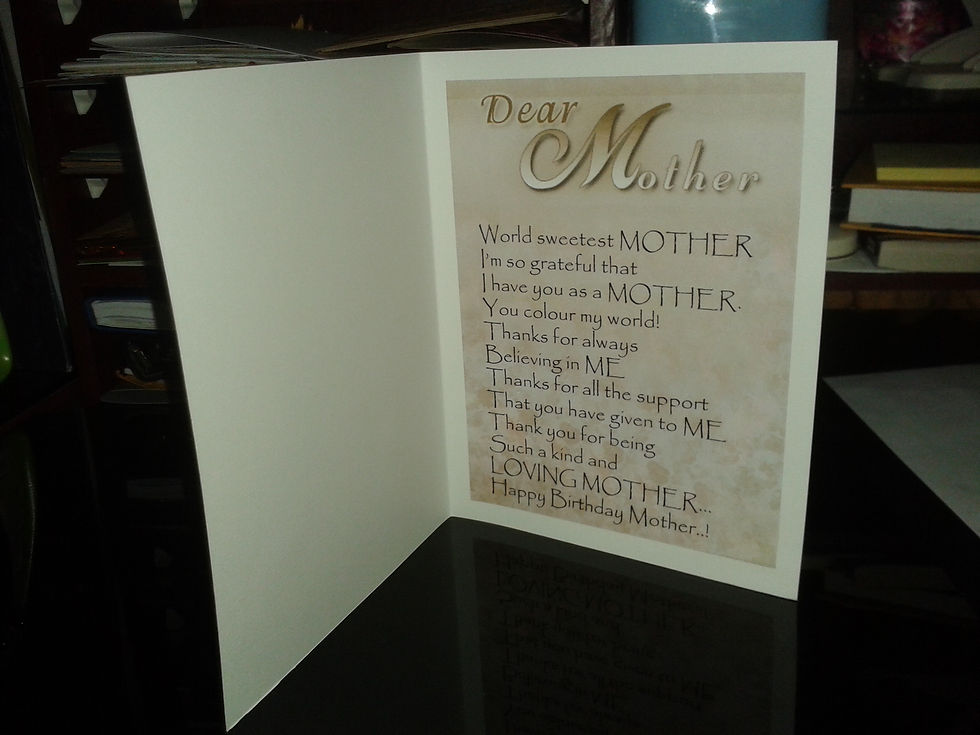 Dear
Mother
World sweetest MOTHER
I'm so grateful that
I have you as a MOTHER.
You colour my world!
Thanks for always
Believing in ME
Thanks for all the support
That you have given to ME
Thank you for being
Such a kind and
LOVING MOTHER...
Happy Birthday Mother..!